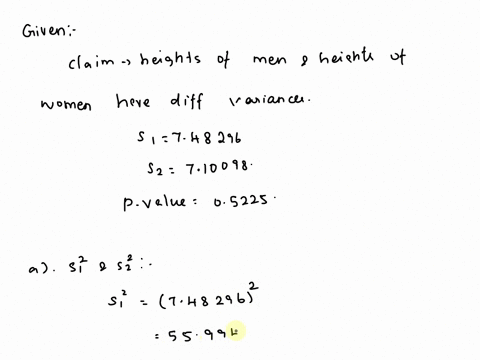 Given:-
claim → heights of men & heights of
women have diff variances.
S1 = 7.48296
S2 = 7.10098.
P.value = 0.5225.
a). S1² & S2² :-
S1² = (7.48296)²
= 55.994